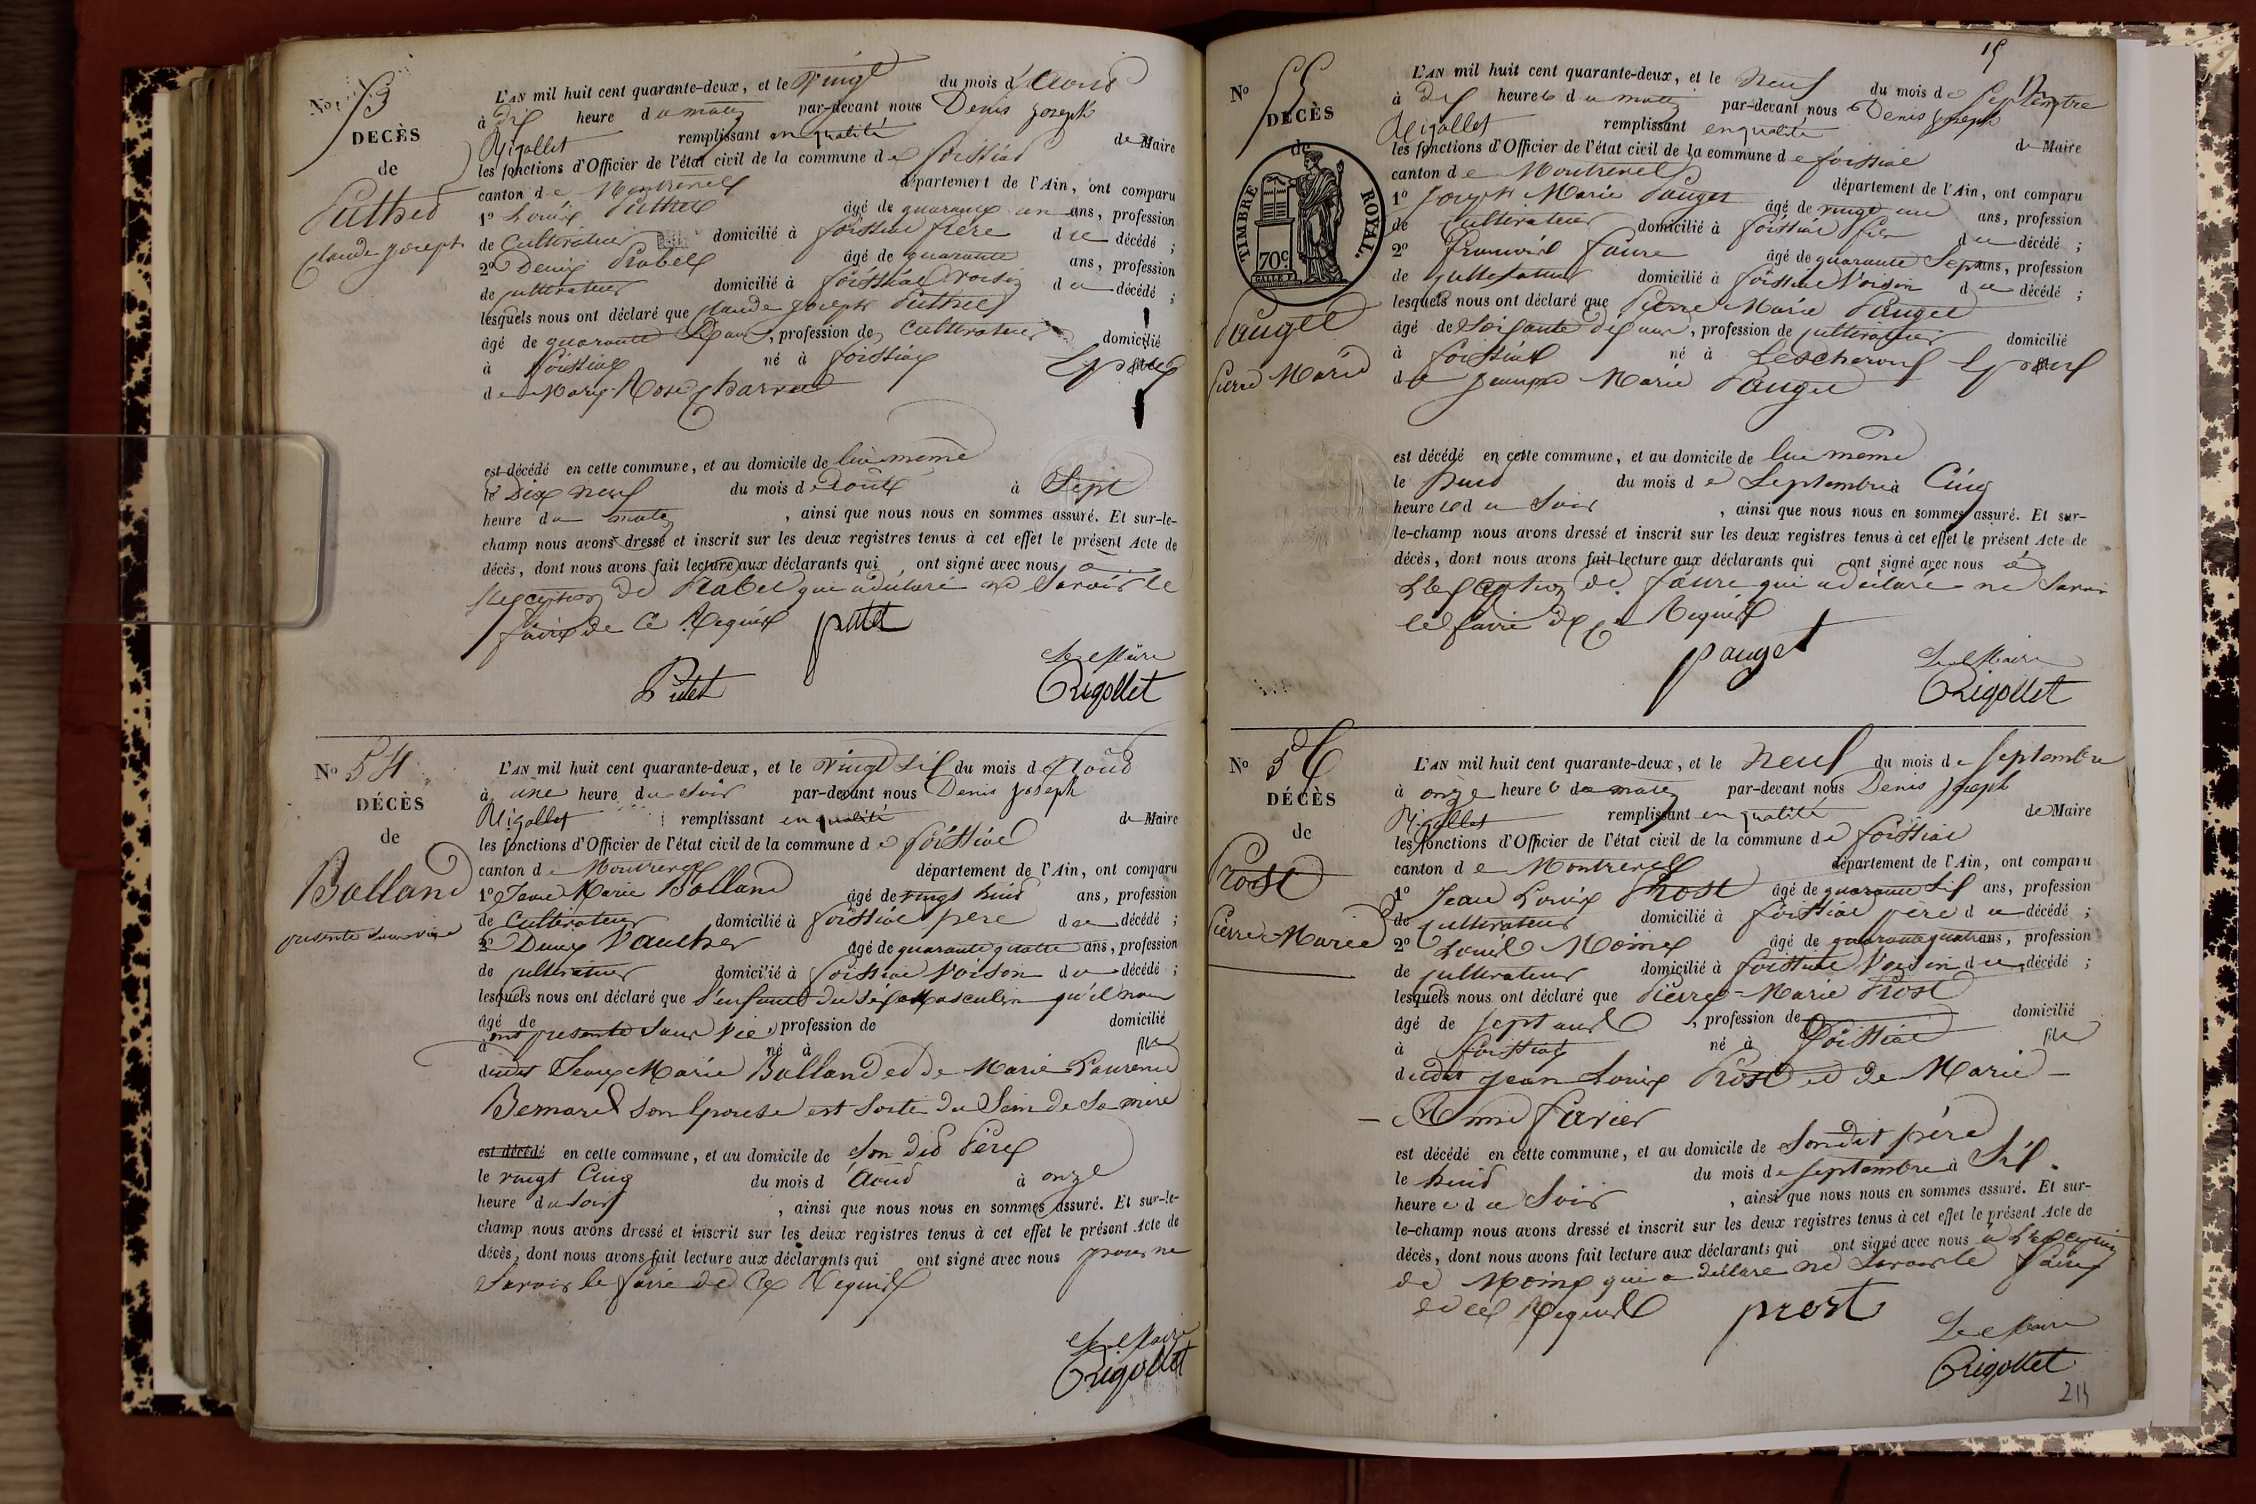 No 53
DECÈS
de
Puthed
Claude Joseph
L'AN mil huit cent quarante-deux, et le vingt du mois d'Aout
à dix heure du matin par-devant nous Denis Joseph
Rigollet remplissant en qualité de Maire
les fonctions d'Officier de l'état civil de la commune de foissiat
canton de Montrevel département de l'Ain, ont comparu
1º Louis Puthet âgé de quarante un ans, profession
de Cultivateur domicilié à foissiat frere du décédé ;
2º Denis Rabel âgé de quarante ans, profession
de cultivateur domicilié à foissiat voisin du décédé ;
lesquels nous ont déclaré que Claude Joseph Puthet
âgé de quarante ans, profession de Cultivateur domicilié
à foissiat né à foissiat Epoux
de Marie Rose Charvet
est décédé en cette commune, et au domicile de lui même
le Dix neuf du mois d'aout à Sept
heure du matin, ainsi que nous nous en sommes assuré. Et sur-le-
champ nous avons dressé et inscrit sur les deux registres tenus à cet effet le présent Acte de
décès, dont nous avons fait lecture aux déclarants qui ont signé avec nous a
l'exception de Rabel qui a déclaré ne Savoir le
faire de ce Requis putet
Putet
Le Maire
Rigollet
No 54
DÉCÈS
de
Balland
présenté sans vie
L'AN mil huit cent quarante-deux, et le vingt Six du mois d'Aout
à une heure du Soir par-devant nous Denis Joseph
Rigollet remplissant en qualité de Maire
les fonctions d'Officier de l'état civil de la commune de foissiat
canton de Montrevel département de l'Ain, ont comparu
1º Jean Marie Balland âgé de vingt huit ans, profession
de Cultivateur domicilié à foissiat pere du décédé ;
2º Denis Vaucher âgé de quarante quatre ans, profession
de cultivateur domicilié à foissiat Voison du décédé ;
lesquels nous ont déclaré que l'enfant du Sexe Masculin qu'il nous
âgé de ont presenté Sans Vie, profession de domicilié
à né à fils
dudit Jean Marie Balland et de Marie Laurence
Bernard Son Epouse est Sortie du Sein de Sa mere
est décédé en cette commune, et au domicile de Son dit Père
le vingt Cinq du mois d'Aout à onze
heure du Soir, ainsi que nous nous en sommes assuré. Et sur-le-
champ nous avons dressé et inscrit sur les deux registres tenus à cet effet le présent Acte de
décès, dont nous avons fait lecture aux déclarants qui ont signé avec nous pour ne
Savoir le faire de Ce Requis
Le Maire
Rigollet
15
No 55
DECÈS
de
TIMBRE ROYAL.
70c
Pauget
Pierre Marie
L'AN mil huit cent quarante-deux, et le Neuf du mois de Septembre
à dix heures du matin par-devant nous Denis Joseph
Rigollet remplissant en qualité de Maire
les fonctions d'Officier de l'état civil de la commune de foissiat
canton de Montrevel département de l'Ain, ont comparu
1º Joseph Marie Pauget âgé de vingt un ans, profession
de Cultivateur domicilié à foissiat fils du décédé ;
2º François Faure âgé de quarante Sept ans, profession
de cultivateur domicilié à foissiat Voisin du décédé ;
lesquels nous ont déclaré que Pierre Marie Pauget
âgé de Soixante dix ans, profession de cultivateur domicilié
à foissiat né à Lescheroux Epoux
de Marie Pauget
est décédé en cette commune, et au domicile de lui même
le huit du mois de Septembre à Cinq
heures du Soir, ainsi que nous nous en sommes assuré. Et sur-
le-champ nous avons dressé et inscrit sur les deux registres tenus à cet effet le présent Acte de
décès, dont nous avons fait lecture aux déclarants qui ont signé avec nous à
L'exception de Faure qui a déclaré ne Savoir
le faire de ce Requis
pauget
Le Maire
Rigollet
No 56
DÉCÈS
de
Prost
Pierre-Marie
L'AN mil huit cent quarante-deux, et le Neuf du mois de Septembre
à onze heures du matin par-devant nous Denis Joseph
Rigollet remplissant en qualité de Maire
les fonctions d'Officier de l'état civil de la commune de foissiat
canton de Montrevel département de l'Ain, ont comparu
1º Jean Louis Prost âgé de quarante Six ans, profession
de cultivateur domicilié à foissiat père du décédé ;
2º Louis Moine âgé de quarante quatre ans, profession
de cultivateur domicilié à foissiat Voisin du décédé ;
lesquels nous ont déclaré que Pierre-Marie Prost
âgé de Sept ans, profession de domicilié
à foissiat né à foissiat fils
dudit Jean Louis Prost et de Marie
Anne Favier
est décédé en cette commune, et au domicile de Sondit père
le huit du mois de Septembre à Six
heures du Soir, ainsi que nous nous en sommes assuré. Et sur-
le-champ nous avons dressé et inscrit sur les deux registres tenus à cet effet le présent Acte de
décès, dont nous avons fait lecture aux déclarants qui ont signé avec nous à L'exception
de Moine qui a déclaré ne Savoir le faire
de ce Requis prost
Le Maire
Rigollet